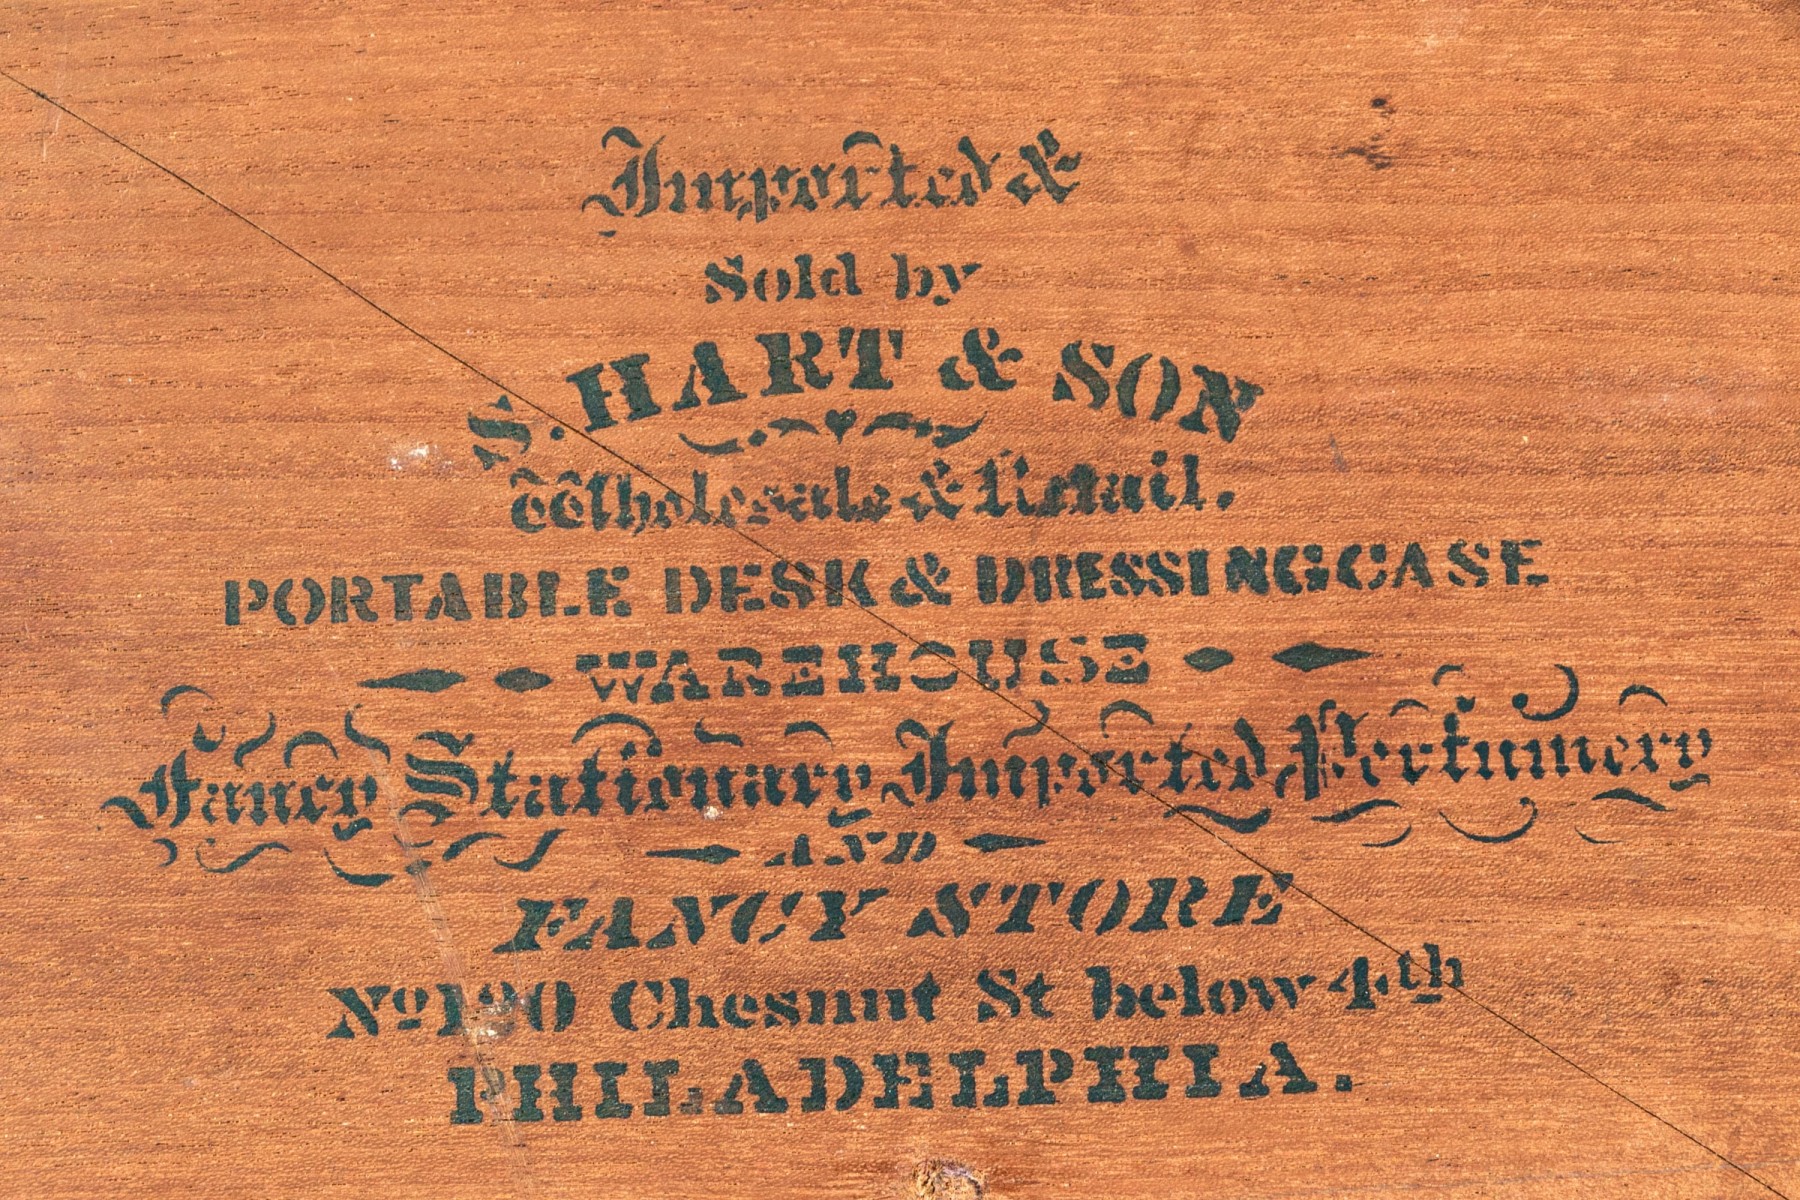 Imported &
Sold by
S. HART & SON
Wholesale & Retail.
PORTABLE DESK & DRESSING CASE
WAREHOUSE
Fancy Stationary Imported Perfumery
AND
FANCY STORE
No Chesnut St below 4th
PHILADELPHIA.